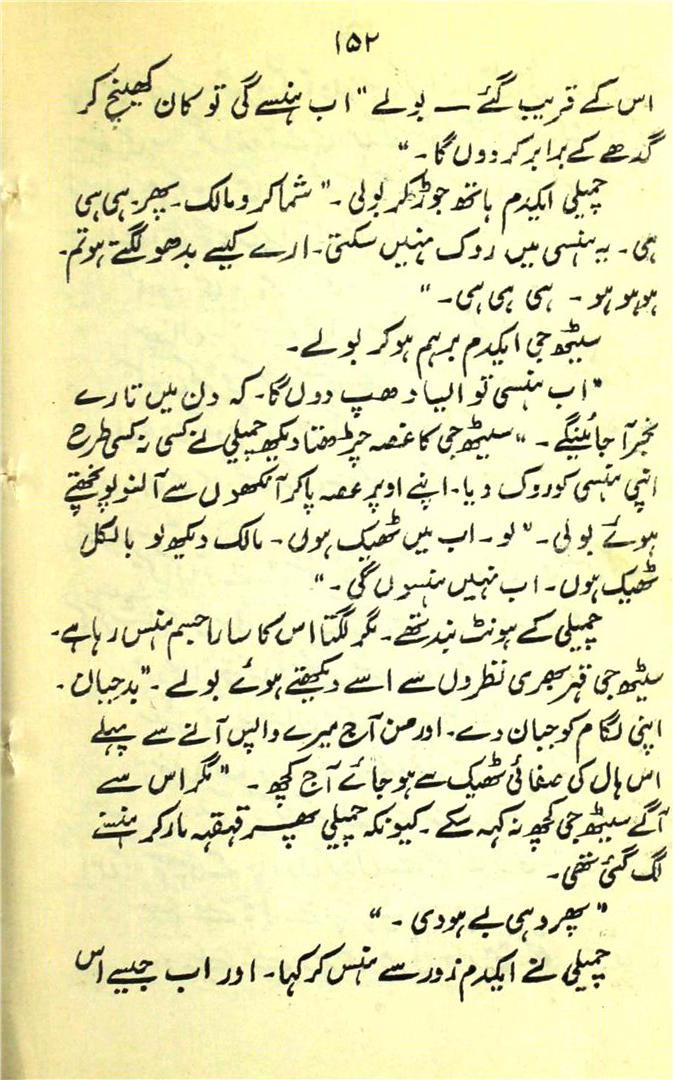 ۱۵۲
اس کے قریب گئے ــ بولے "اب ہنسے گی تو کان کھینچ کر
گدھے کے برابر کر دوں گا۔"
چمپیلی ایکدم ہاتھ جوڑ کر بولی۔" شما کرو مالک۔ پھر۔ ہی ہی
ہی۔ یہ ہنسی میں روک نہیں سکتی۔ ارے کیسے بدھو لگتے ہو تم۔
ہو ہو ہو۔ ہی ہی ہی۔"
سیٹھ جی ایکدم برہم ہو کر بولے۔
"اب ہنسی تو ایسا دھپ دوں گا۔ کہ دن میں تارے
نجر آ جائینگے۔" سیٹھ جی کا غصہ چڑھتا دیکھ چمپیلی نے کسی نہ کسی طرح
اپنی ہنسی کو روک دیا۔ اپنے اوپر غصہ پا کر آنکھوں سے آنسو پونچھتے
ہوئے بولی۔" لو۔ اب میں ٹھیک ہوں۔ مالک دیکھ لو بالکل
ٹھیک ہوں۔ اب نہیں ہنسوں گی۔"
چمپیلی کے ہونٹ بند تھے۔ مگر لگتا اس کا سارا جسم ہنس رہا ہے۔
سیٹھ جی قہر بھری نظروں سے اسے دیکھتے ہوئے بولے۔" بدجبان۔
اپنی لگام کو جبان دے۔ اور سن آج میرے واپس آنے سے پہلے
اس ہال کی صفائی ٹھیک سے ہو جائے آج کچھ۔ " مگر اس سے
آگے سیٹھ جی کچھ نہ کہہ سکے۔ کیونکہ چمپیلی پھر قہقہہ مار کر ہنسنے
لگ گئی تھی۔
" پھر وہی بے ہودی۔ "
چمپیلی نے ایکدم زور سے ہنس کر کہا۔ اور اب جیسے اس